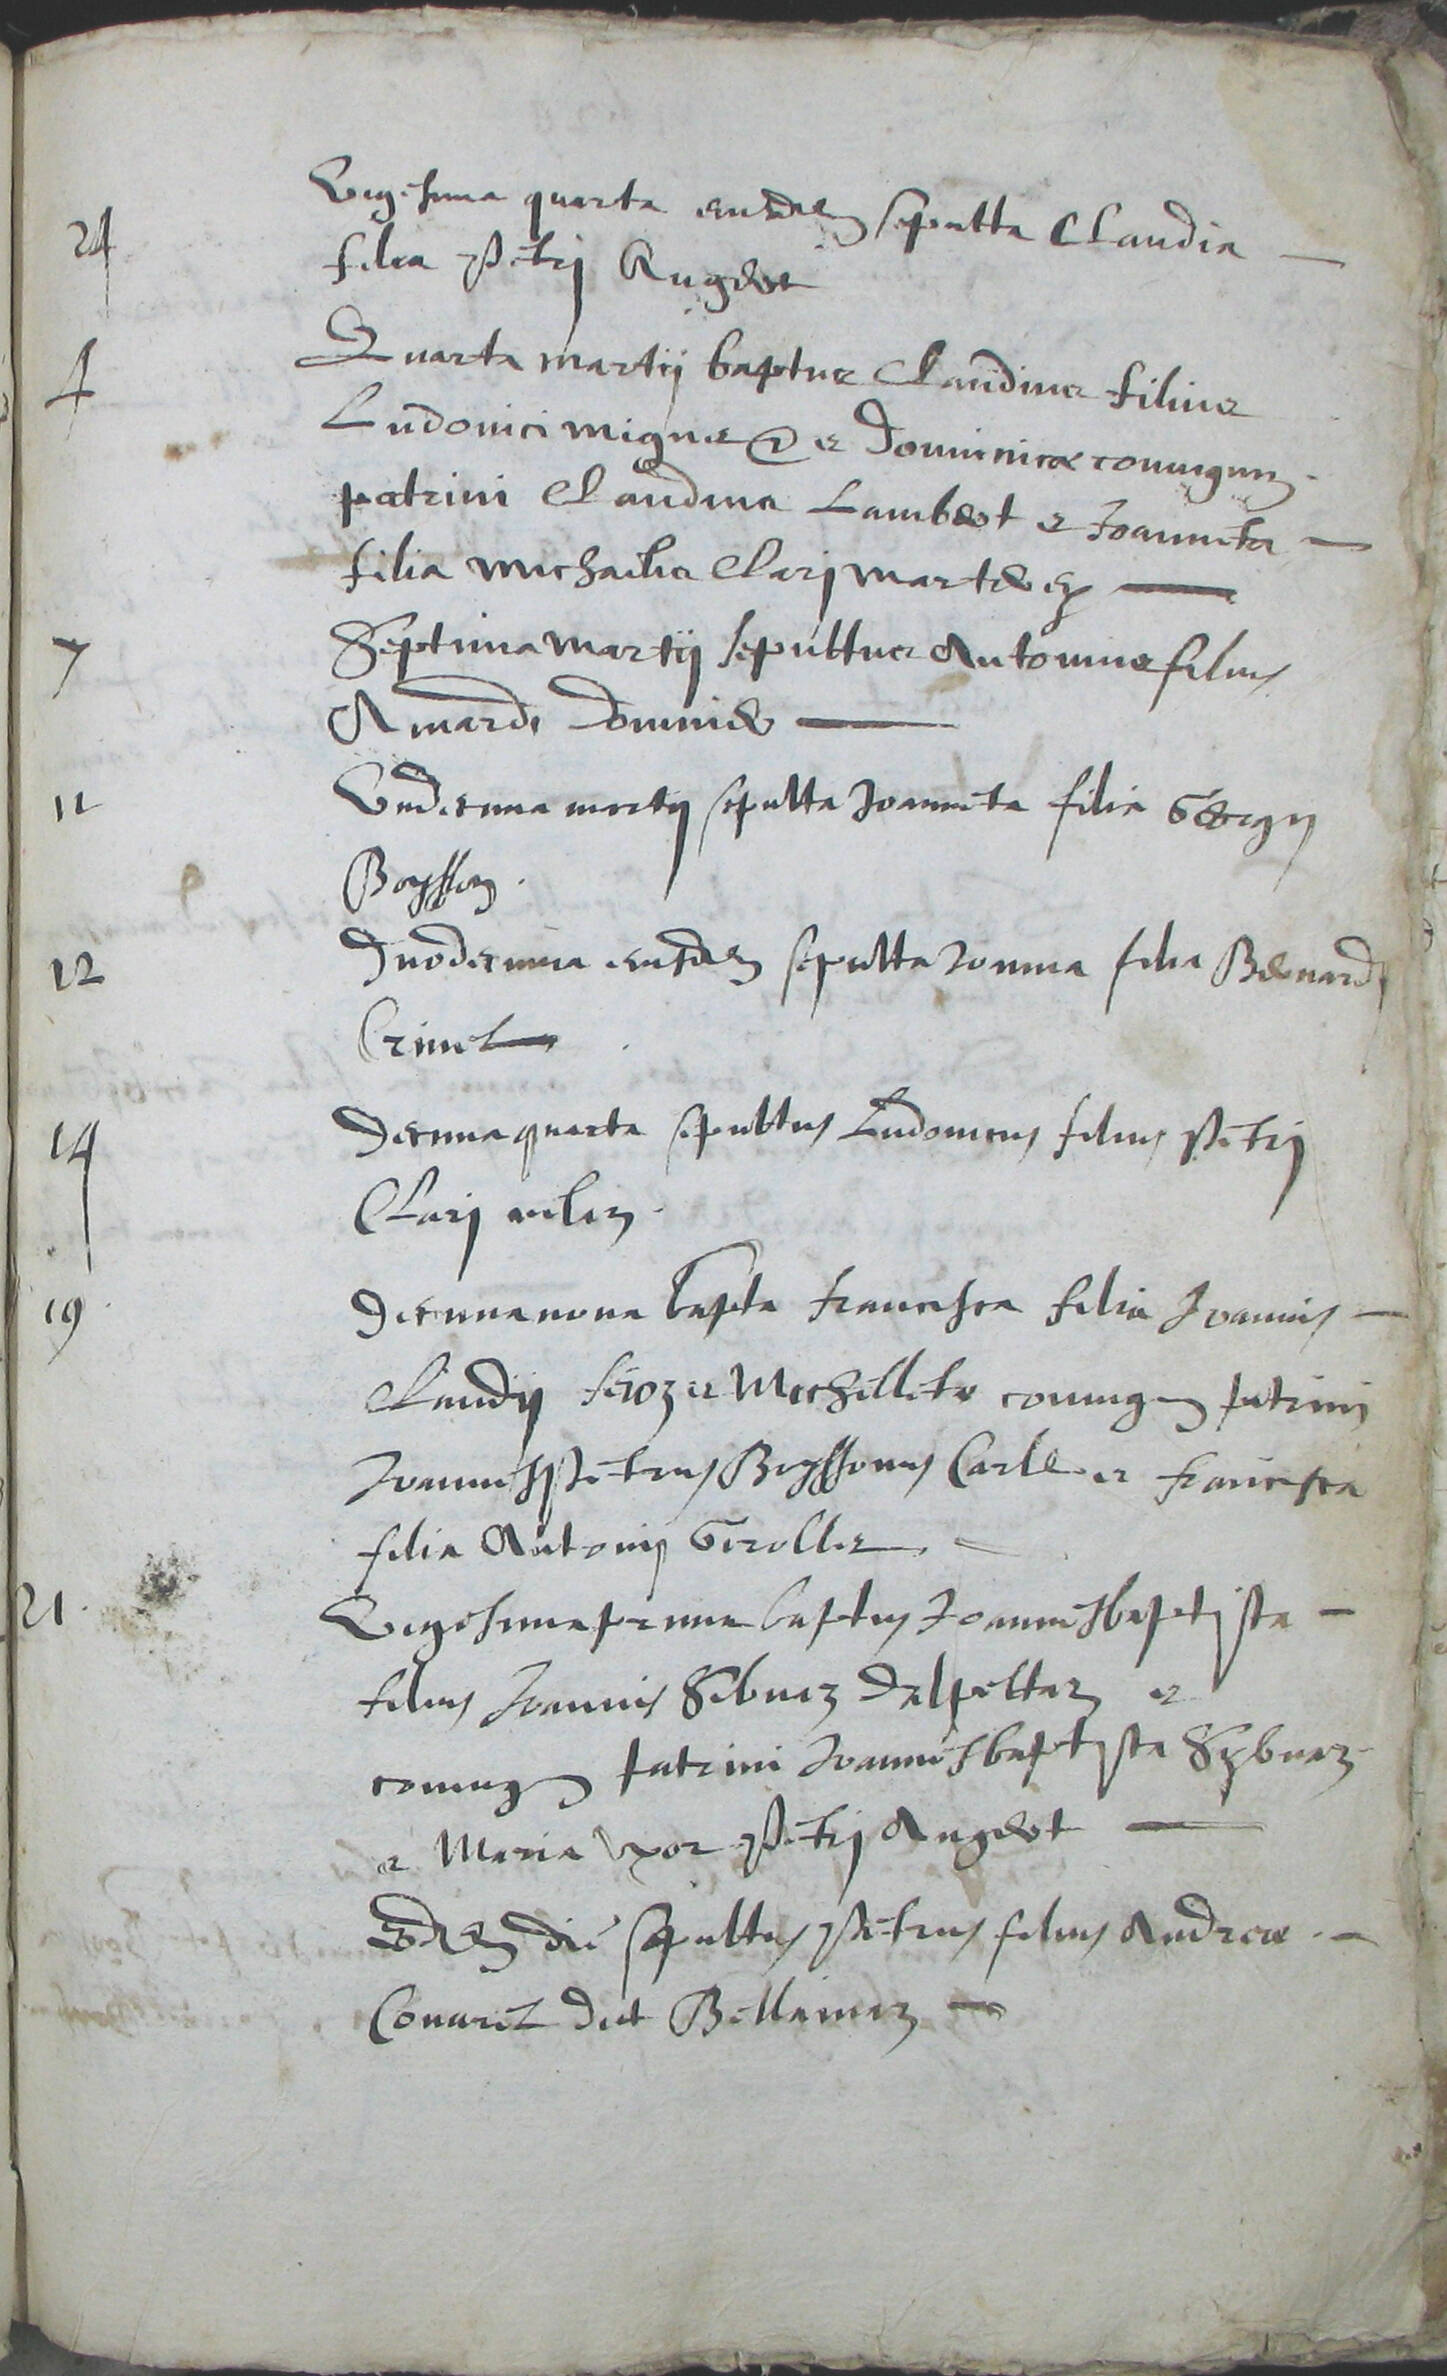 24 Vigesima quarta eiusdem sepulta Claudia —
filia Petri Angelot
4 Quarta martij baptus Claudius filius
Ludovici mignot et Dominicæ coniugum
patrini Claudina Lambert et Joanneta —
filia michaelis Clarj marterey —
7 Septima martij sepultus Antonius filius
Amardi
11 Undecima martij sepulta Joanneta filia Georgij
Boysson.
12 Duodecima eiusdem sepulta Jonina filia Bernardj
Crinel
14 Decima quarta sepultus Ludovicus filius Petrj
Clarj
19 Decima nona bapta francesca filia Joannis —
Claudij feroz et Michilletæ coniugum patrini
Joannes Petrus Boyssonus Carle et francesca
filia Antonij Gerollet
21. Vigesima prima baptus Joannes baptista —
filius Joannis Sibuaz et
coniugum patrini Joannes baptista Sybuaz
et Maria Uxor Petrj Angelot —
Eodem die sepultus Petrus filius Andreæ —
Covarel dict Bellamaz —